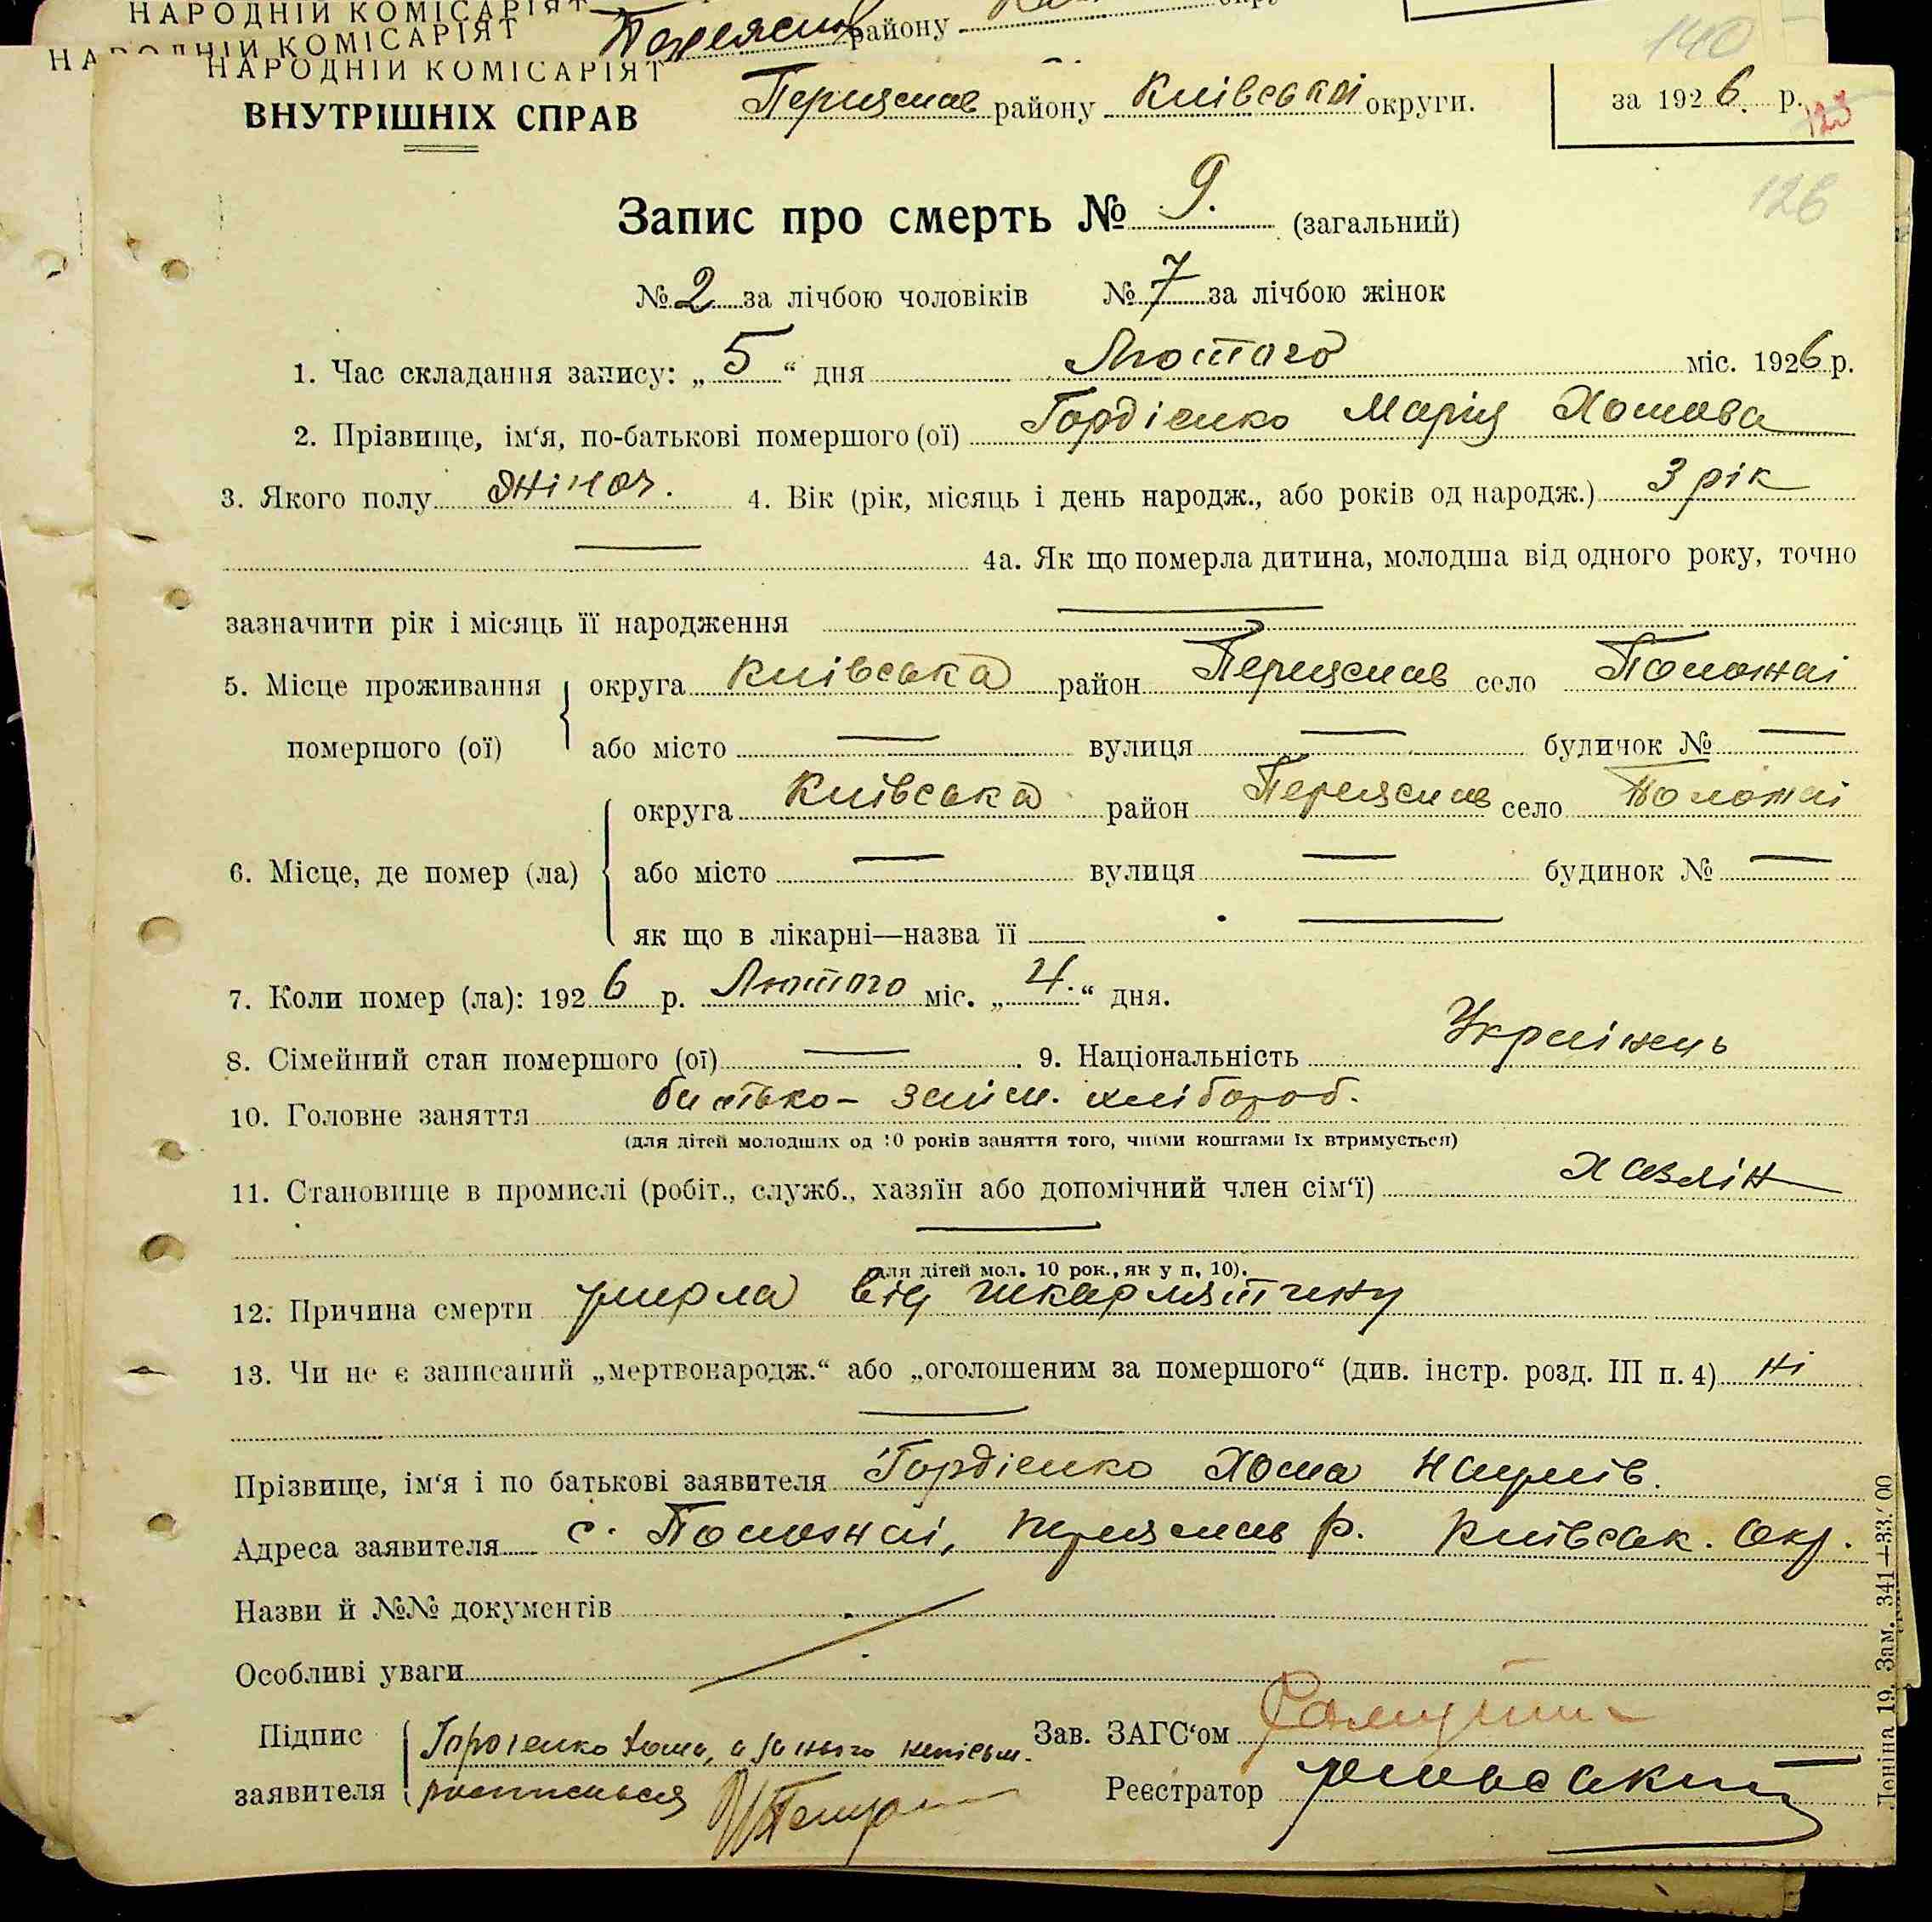 НАРОДНІЙ КОМІСАРІЯТ
НАРОДНІЙ КОМІСАРІЯТ району
140
НАРОДНІЙ КОМІСАРІЯТ
ВНУТРІШНІХ СПРАВ Переяслав району Київської округи. за 1926. р.
123
126
Запис про смерть № 9. (загальний)
№ 2 за лічбою чоловіків № 7 за лічбою жінок
1. Час складання запису: „5“ дня Лютого міс. 1926 р.
2. Прізвище, ім‘я, по-батькові помершого (ої) Гордіенко Марія Хомова
3. Якого полу жіноч. 4. Вік (рік, місяць і день народж., або років од народж.) 3 рік
— 4а. Як що померла дитина, молодша від одного року, точно
зазначити рік і місяць її народження —
5. Місце проживання округа Київська район Переяслав село Положаї
помершого (ої) або місто — вулиця — будинок № —
округа Київська район Переяслав село Положаї
6. Місце, де помер (ла) або місто — вулиця — будинок № —
як що в лікарні—назва її —
7. Коли помер (ла): 1926 р. Лютого міс. „4.“ дня.
8. Сімейний стан помершого (ої) — 9. Національність Украінець
10. Головне заняття батько – займ. хлібороб.
(для дітей молодших од 10 років заняття того, чиїми коштами їх втримується)
11. Становище в промислі (робіт., служб., хазяїн або допомічний член сім‘ї) хазяін
—
для дітей мол. 10 рок., як у п. 10).
12. Причина смерти умерла від шкарлятини
13. Чи не є записаний „мертвонародж.“ або „оголошеним за помершого“ (див. інстр. розд. III п. 4) ні
—
Прізвище, ім‘я і по батькові заявителя Гордіенко Хома
Адреса заявителя с. Положаі, Переяслав р. Київськ. Окр.
Назви й №№ документів
Особливі уваги
Підпис Гордіенко Хома, а за нього неписьм. Зав. ЗАГС‘ом
заявителя росписався Реєстратор
19. Зам. 341—33.′00